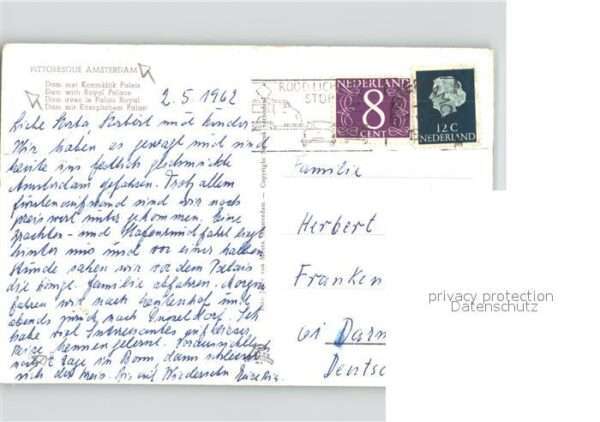 PITTORESQUE AMSTERDAM
Dam met Koninklijk Paleis
Dam with Royal Palace
Dam avec le Palais Royal
Dam mit Königlichem Palast
2.5.1962
Liebe Herta, Herbert und Kinder,
Wir haben es gewagt und sind
heute ins festlich geschmückte
Amsterdam gefahren. Trotz allem
Fürstenaufwand sind wir noch
preiswert unter gekommen. Eine
Grachten- und Hafenrundfahrt liegt
hinter uns und vor einer halben
Stunde sahen wir vor dem Palais
die königl. Familie abfahren. Morgen
fahren wir nach Keukenhof und
abends zurück nach Düsseldorf. Ich
habe viel Interessantes auf dieser
Reise kennengelernt. Voraussichtlich
noch Tage in Bonn dann schliesst
sich der Kreis. Bis auf Wiedersehn
NEDERLAND
8
CENT
12 C
NEDERLAND
STOP
Familie
Herbert
Franken
bei Darm
Deutsc
privacy protection
Datenschutz